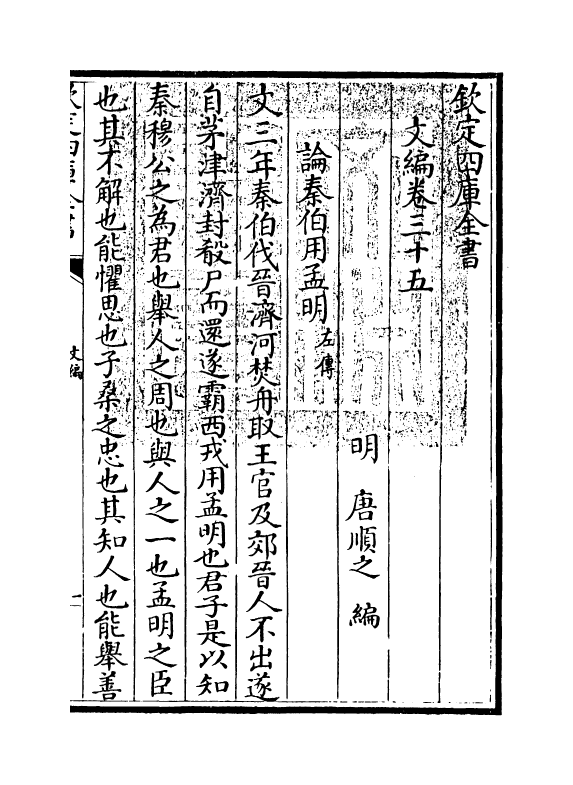 欽定四庫全書
文編卷三十五
明 唐順之 編
論秦伯用孟明 左傳
文三年秦伯伐晉濟河焚舟取王官及郊晉人不出遂
自茅津濟封殽尸而還遂霸西戎用孟明也君子是以知
秦穆公之為君也舉人之周也與人之一也孟明之臣
也其不解也能懼思也子桑之忠也其知人也能舉善
文編